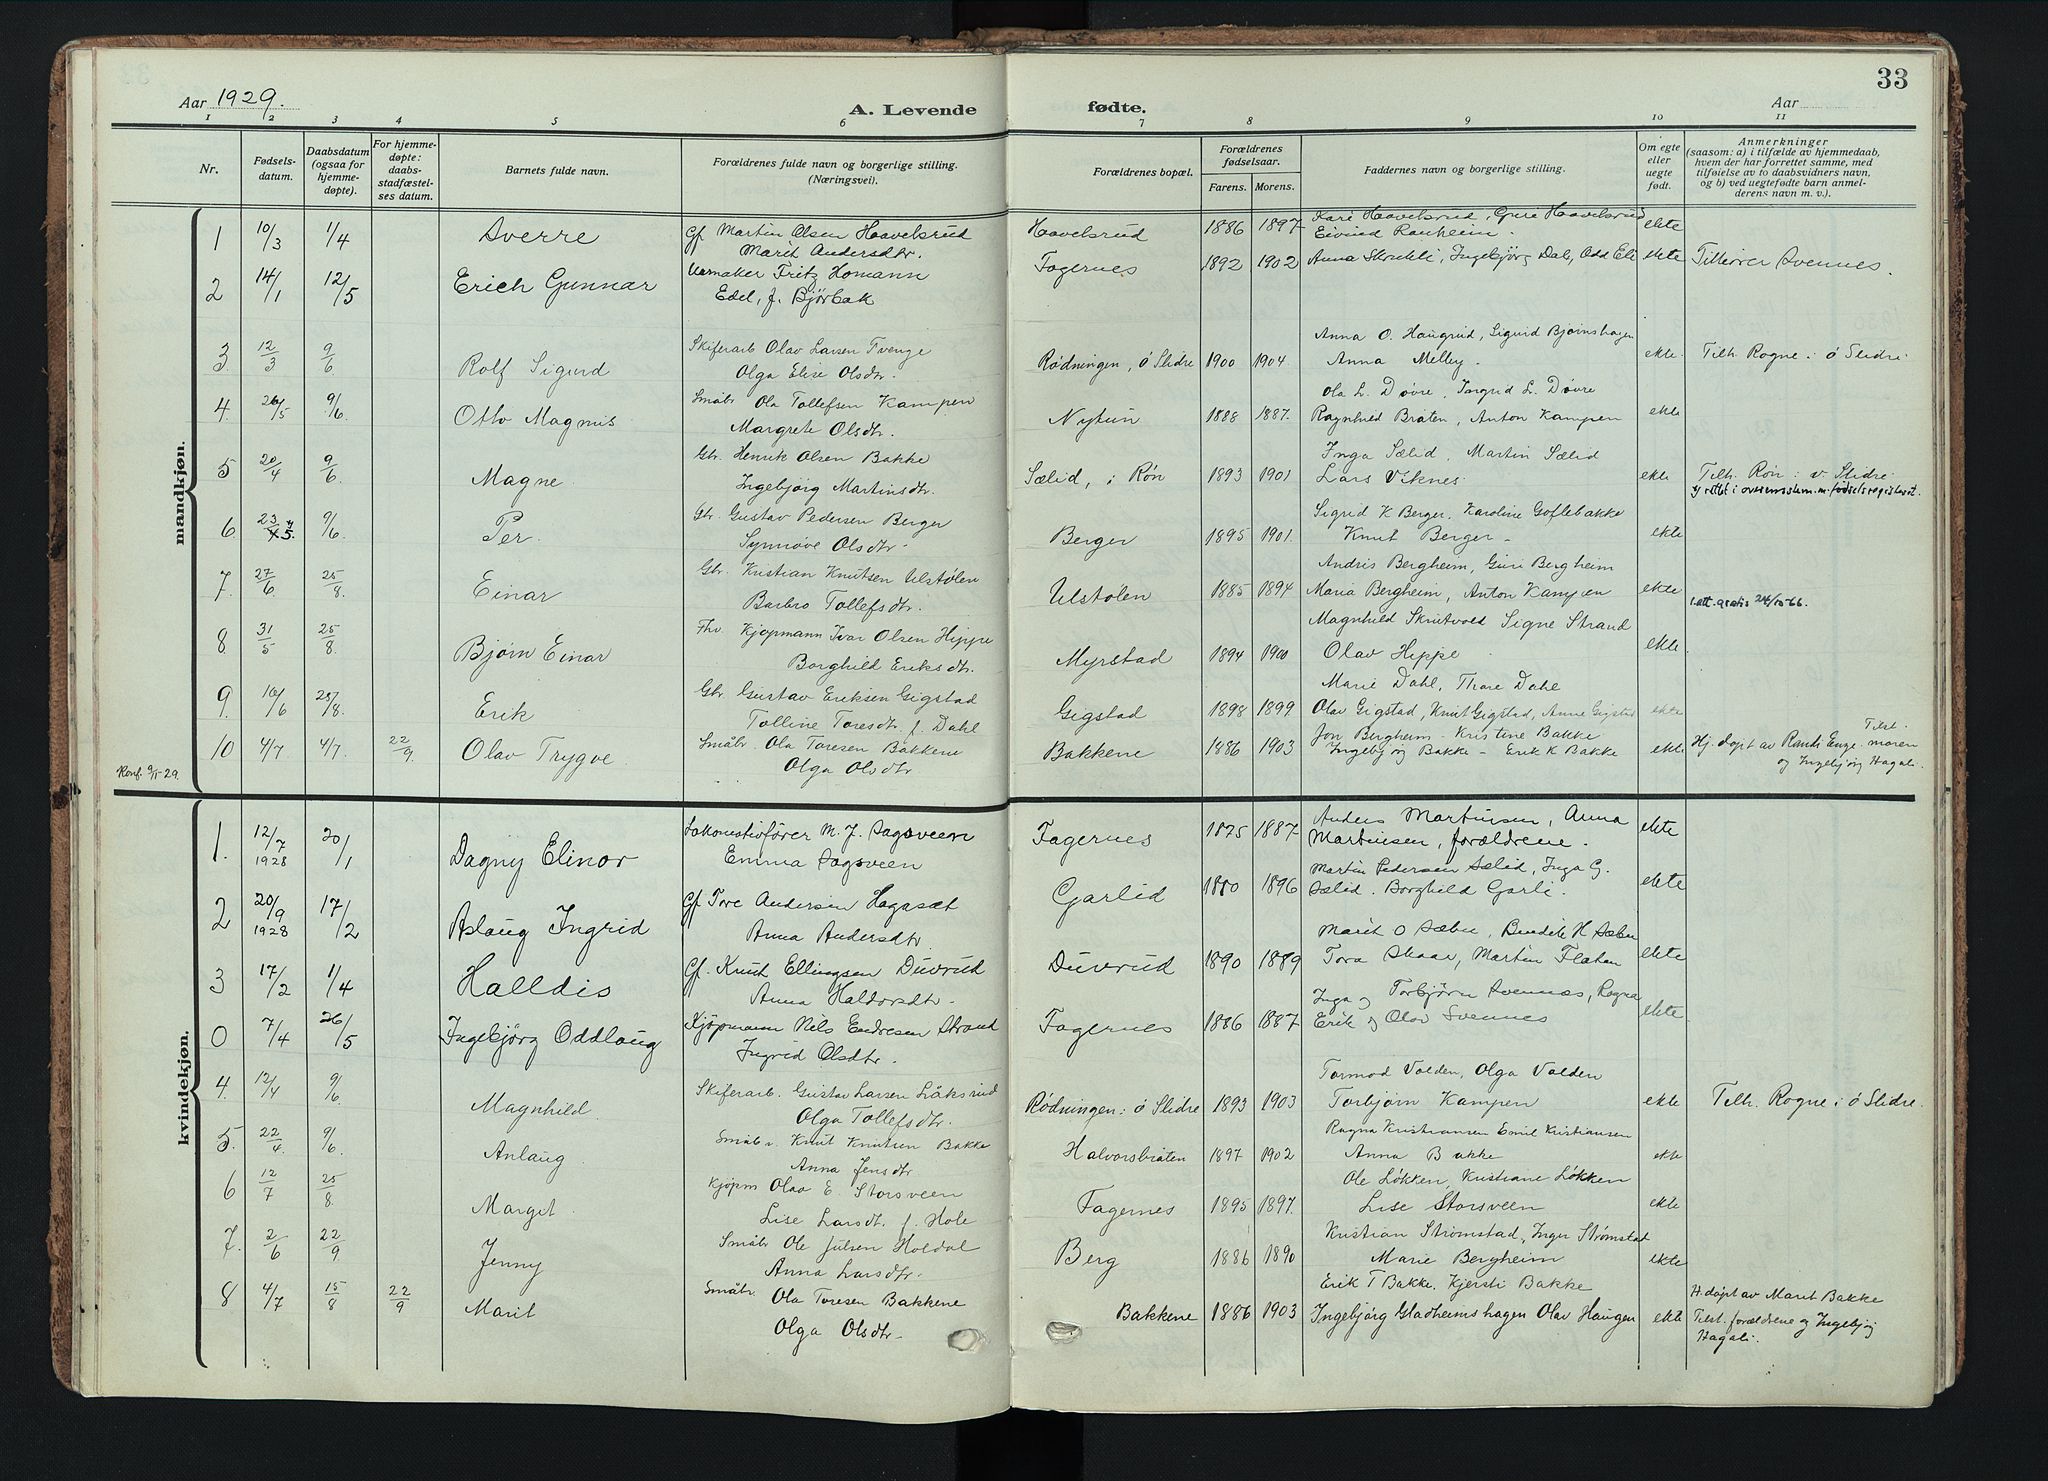 33
Aar 1929.
A. Levende fødte.
Aar
1 2 3 4 5 6 7 8 9 10 11
Nr.
Fødsels-
datum.
Daabsdatum
(ogsaa for
hjemme-
døpte).
For hjemme-
døpte:
daabs-
stadfæstel-
ses datum.
Barnets fulde navn.
Forældrenes fulde navn og borgerlige stilling.
(Næringsvei).
Forældrenes bopæl.
Forældrenes
fødselsaar.
Farens. Morens.
Faddernes navn og borgerlige stilling.
Om egte
eller
uegte
født.
Anmerkninger
(saasom: a) i tilfælde av hjemmedaab,
hvem der har forrettet samme, med
tilføielse av to daabsvidners navn,
og b) ved uegtefødte barn anmel-
derens navn m. v.).
mandkjøn.
1 10/3 1/4 Sverre Gf Martin Olsen Haavelsrud Haavelsrud 1886 1897 Kari Haavelsrud, Guri Haavelsrud ekte
Marit Andersdtr. Eivind Ranheim.
2 14/1 12/5 Erich Gunnar Urmaker Fritz Homann Fagernes 1892 1902 Anna Skrukli, Ingebjørg Dal, Odd Eli ekte Svennes.
Edel, f. Bjørbak
3. 12/3 9/6 Rolf Sigurd Skiferarb Olav Larsen Tvenge Rødningen, ø Slidre 1900 1904. Anna O. Haugrud, Sigurd Bjørnshagen ekte. Tilh. Rogne i ø Slidre.
Olga Elise Olsdtr. Anna Melby.
4. 26/5 9/6. Otto Magnus Småbr Ola Tollefsen Kampen Nytun 1888 1887. Ola L. Døvre, Ingrid L. Døvre ekte
Margrete Olsdtr. Ragnhild Bråten, Anton Kampen
5 20/4 9/6 Magne. Gbr. Henrik Olsen Bakke Sælid, i Røn 1893 1901 Inga Sælid, Martin Sælid ekte Tilh. Røn i v. Slidre
Ingebjørg Martinsdtr. Lars Viknes. rettet i overensstem. m. fødselsregisteret.
6. 23/4 5. 9/6. Per. Gbr. Gustav Pedersen Berger Berger 1895 1901. Sigrid K Berger, Karoline Goflebakke ekte
Synnøve Olsdtr. Knut Berger
7. 27/6. 25/8. Einar Gbr. Kristian Knutsen Ulstølen Ulstølen 1885 1894 Andris Bergheim, Guri Bergheim ekte
Barbro Tollefsdtr. Maria Bergheim, Anton Kampen 1 att. gratis 24/10-66.
8 31/5 25/8. Bjørn Einar Fhv. Kjøpmann Ivar Olsen Hippe Myrstad 1894 1900 Magnhild Skrutvold Signe Strand ekte
Borghild Eriksdtr. Olav Hippe
9. 16/6 25/8. Erik Gbr. Gustav Eriksen Gigstad Gigstad 1898 1899 Marie Dahl, Thore Dahl ekte
Tolline Toresdtr f. Dahl Olav Gigstad, Knut Gigstad, Anne Gigstad
10 4/7 4/7. 22/9. Olav Trygve Småbr. Ola Toresen Bakkene Bakkene 1886 1903 Jon Bergheim - Kristine Bakke ekte Hj. døpt av Enge. Tilst. moren
Olga Olsdtr Ingebjørg Bakke - Erik K Bakke og Ingebjørg Hagali.
Konf. 9/11-29.
kvindekjøn.
1. 12/7 1928 20/1 Dagny Elinor Lokomotivfører M. J. Sagsveen Fagernes 1875 1887 Anders Martinsen, Anna ekte
Emma Sagsveen Martinsen, forældrene.
2 20/9 1928 17/2 Aslaug Ingrid Gf Tore Andersen Hagaset Garlid 1880 1896 Martin Pedersen Sælid, Inga G. ekte
Anna Andersdtr. Sælid. Borghild Garli.
3 17/2 1/4 Halldis Gf. Knut Ellingsen Duvrud Duvrud 1890 1889 Marit O Sæbu, Bendik H Sæbu ekte
Anna Haldorsdtr. Tora Skaar, Martin Flaten
0 7/4 26/5 Ingebjörg Oddlaug Kjøpmann Nils Endresen Strand Fagernes 1886 1887 Inga og Torbjörn Svennes, Ragna ekte
Ingrid Olsdtr. Erik og Olav Svennes
4. 12/4 9/6. Magnhild. Skiferarb. Gustav Larsen Låksrud Rødningen i ø Slidre 1893 1903 Tormod Volden, Olga Volden ekte Tilh. Rogne i ø Slidre.
Olga Tollefsdtr. Torbjørn Kampen
5. 22/4. 9/6. Anlaug Småbr. Knut Knutsen Bakke Halvorsbråten 1897 1902 Ragna Kristiansen Emil Kristiansen ekte
Anna Jensdtr Anna Bakke
6 12/7 25/8. Marget. Kjøpm Olav E. Storsveen Fagernes 1895 1897. Ole Løkken, Kristiane Løkken ekte
Lise Larsdt. f. Hole Lise Storsveen
7. 2/6 22/9. Jenny Småbr Ole Julsen Holdal Berg 1886 1890 Kristian Strømstad, Inger Strømstad ekte
Anna Larsdtr. Marie Bergheim
8 4/7 15/8 22/9 Marit Småbr. Ola Toresen Bakkene Bakkene 1886 1903 Erik T Bakke. Kjersti Bakke ekte H. døpt av Marit Bakke
Olga Olsdtr. Ingebjörg Gladheimshagen Olav Haugen Tilst. forældrene og Ingebjørg
Hagali.